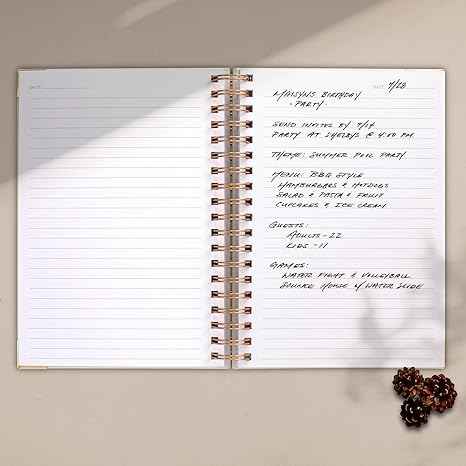 DATE 7/28
MAISYN'S BIRTHDAY
- PARTY
SEND INVITES BY 7/14
PARTY AT SHELBY'S @ 4:00 PM
THEME: SUMMER POOL PARTY
MENU: BBQ STYLE
HAMBURGARS & HOTDOGS
SALAD & PASTA & FRUIT
CUPCAKES & ICE CREAM
GUESTS:
ADULTS - 22
KIDS - 11
GAMES:
WATER FIGHT & VOLLEYBALL
BOUNCE HOUSE W/ WATER SLIDE